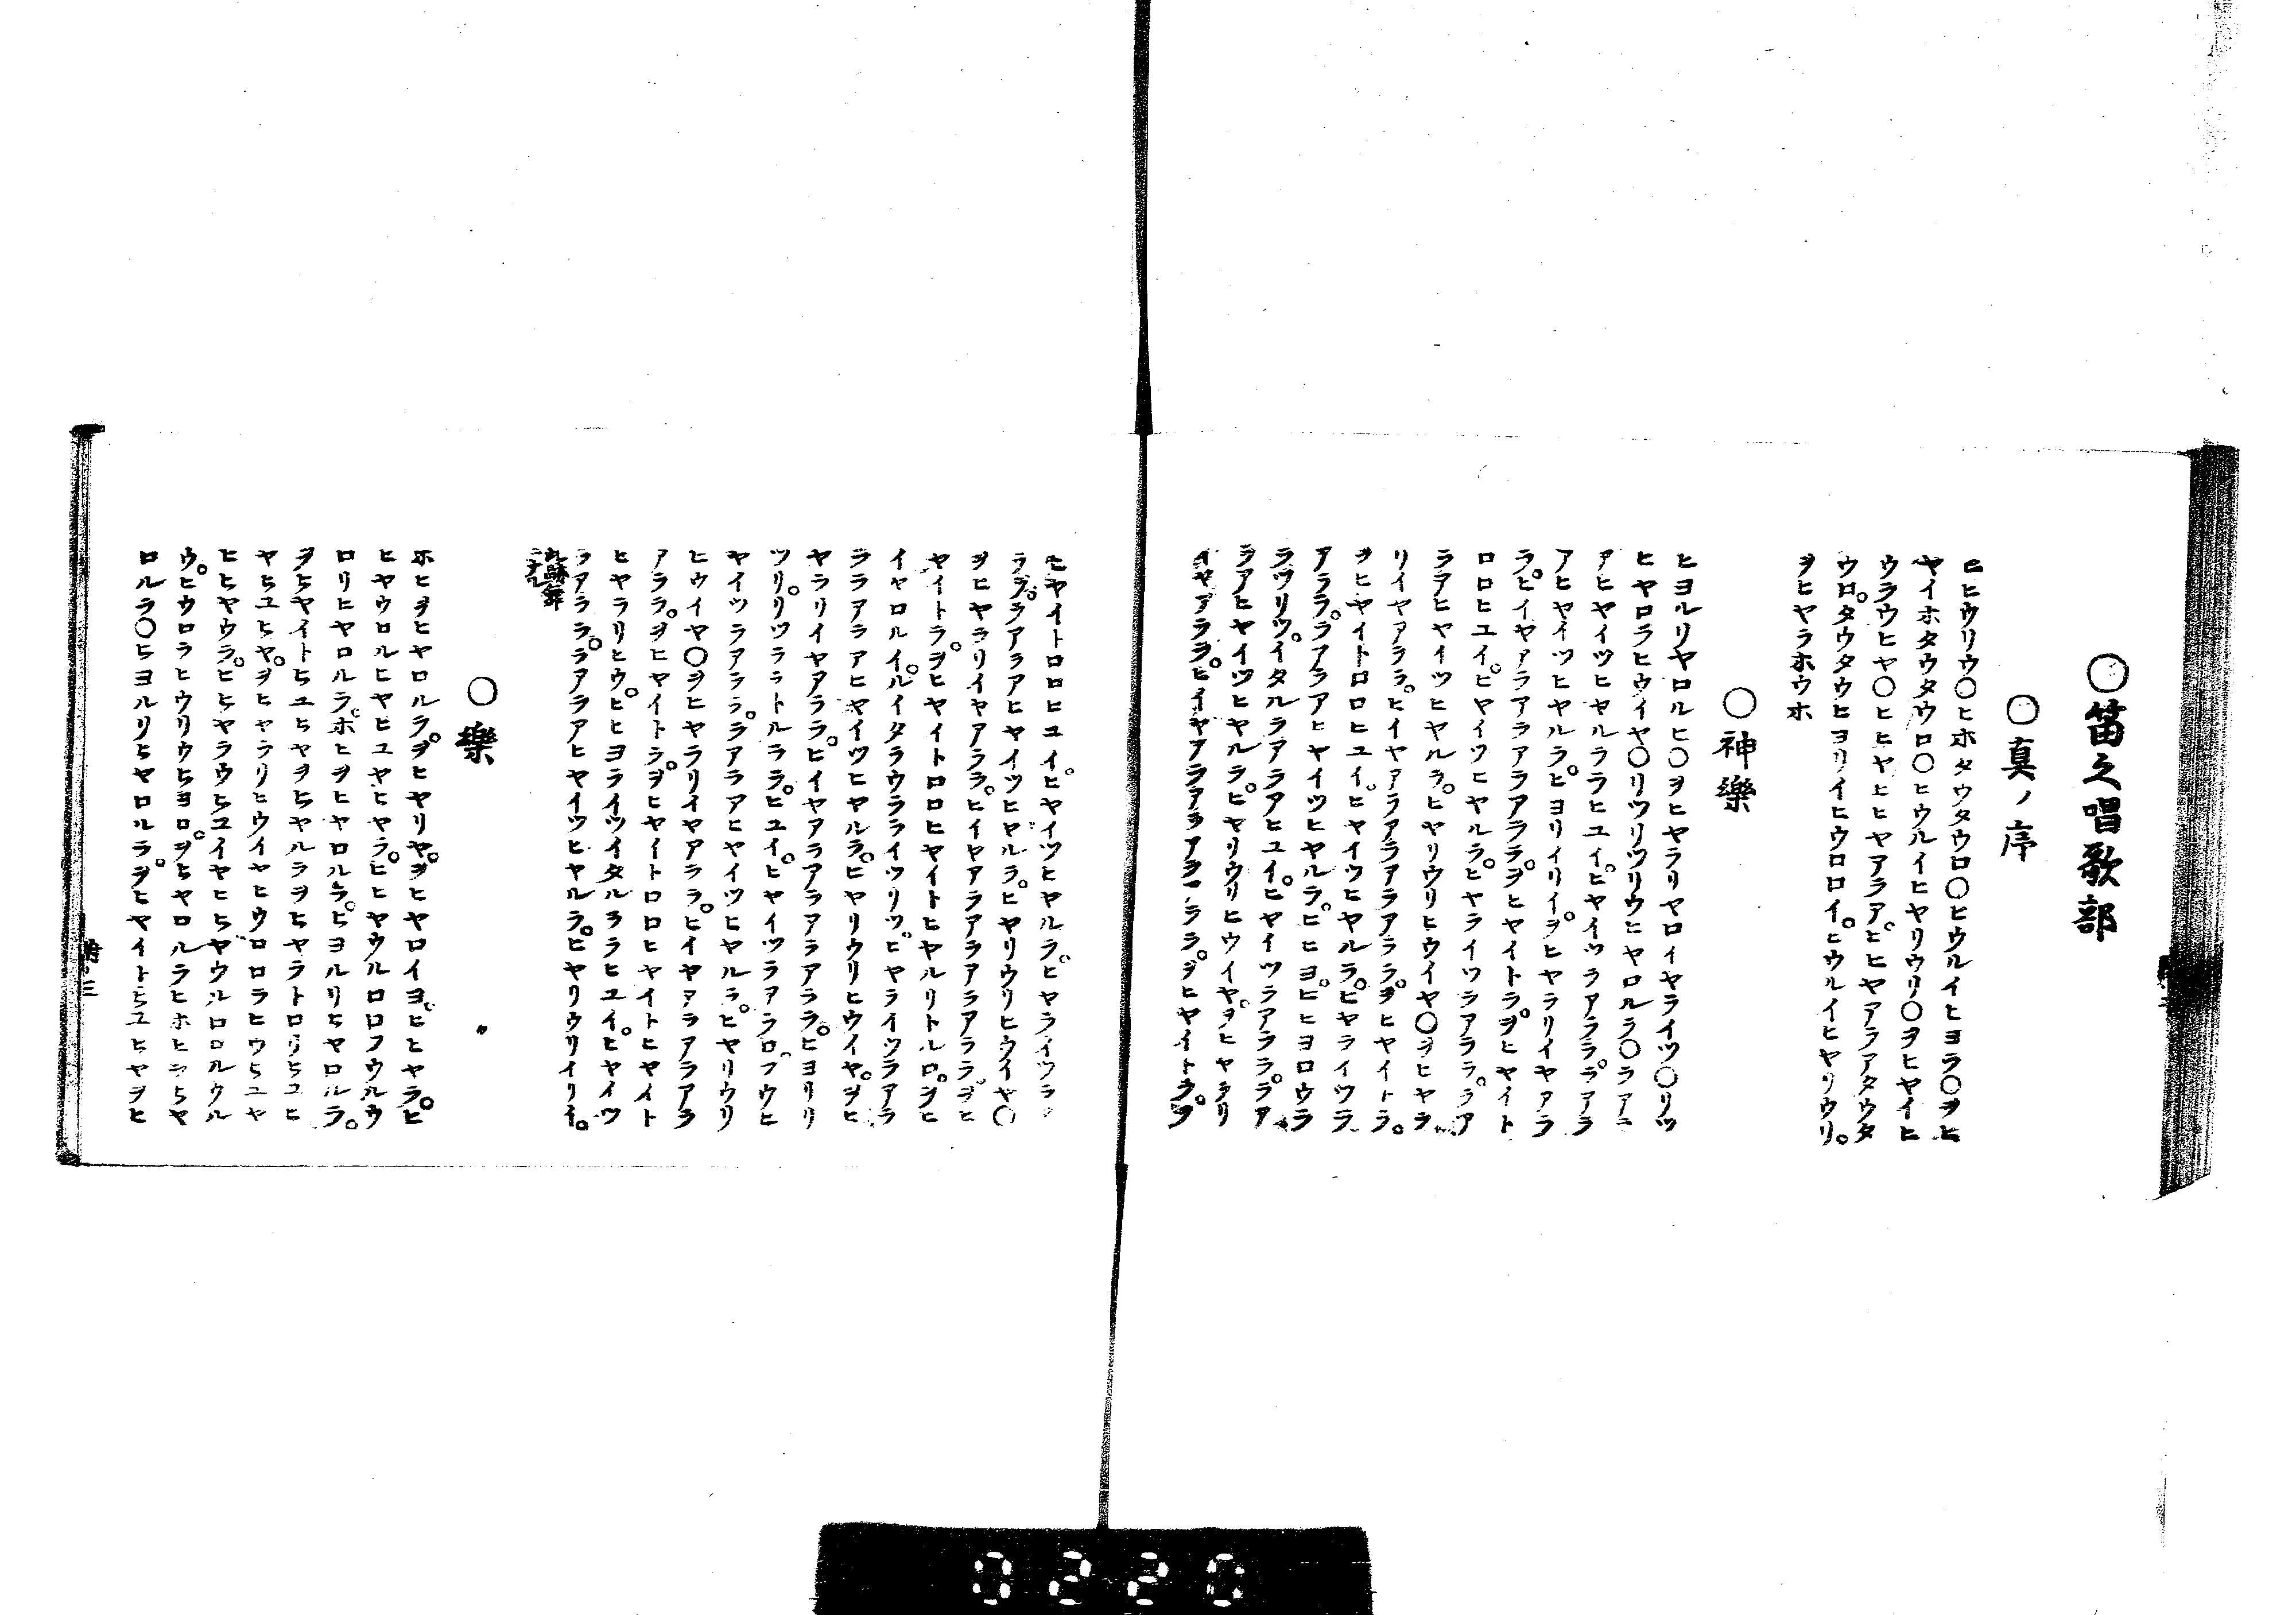 〇笛之唱歌部
〇真ノ序
ヒヒウリウ〇ヒホタウタウロ〇ヒウルイヒヨラ〇ヲヒ
ヤイホタウタウロ〇ヒウルイヒヤリウリ〇ヲヒヤイヒ
ウラウヒヤ〇ヒヒヤヒヒヤアラア。ヒヒヤアラアタウタ
ウロ。タウタウヒヨリイヒウロロイ。ヒウルイヒヤリウリ。
ヲヒヤラホウホ
〇神樂
ヒヨルリヤロルヒ〇ヲヒヤラリヤロイヤライツ〇リツ
ヒヤロラヒウイヤ〇リツリツリウヒヤロルラ〇ラアラ
アヒヤイツヒヤルララヒユイ。ヒヤイツラアララ。ラアラ
アヒヤイツヒヤルラ。ヒヨリイリイ。ヲヒヤラリイヤアラ
ラ。ヒイヤアラアラアラアララ。ヲヒヤイトラ。ヲヒヤイト
ロロヒユイ。ヒヤイツヒヤルラ。ヒヤライツラアララ。ラア
ラアヒヤイツヒヤルラ。ヒヤリウリヒウイヤ〇ヲヒヤラ
リイヤアララ。ヒイヤアラアラアラアララ。ヲヒヤイトラ。
ヲヒヤイトロロヒユイ。ヒヤイツヒヤルラ。ヒヤライツラ
アララ。ラアラアヒヤイツヒヤルラ。ヒヒヨ。ヒヒヨロウラ
ラツリツ。イタルラアラアヒユイ。ヒヤイツラアララ。ラア
ラアヒヤイツヒヤルラ。ヒヤリウリヒウイヤ。ヲヒヤラリ
イヤアララ。ヒイヤアラアラアラアララ。ヲヒヤイトラ。ヲ
ヒヤイトロロヒユイ。ヒヤイツヒヤルラ。ヒヤライツラア
ララ。ラアラアヒヤイツヒヤルラ。ヒヤリウリヒウイヤ〇
ヲヒヤラリイヤアララ。ヒイヤアラアラアラアララ。ヲヒ
ヤイトラ。ヲヒヤイトロロヒヤイトヒヤルリトルロ。ヲヒ
イヤロルイ。ルイタラウララライツリツ。ヒヤライツラアラ
ララアラアヒヤイツヒヤルラ。ヒヤリウリヒウイヤ。ヲヒ
ヤラリイヤアララ。ヒイヤアラアラアラアララ。ヒヨリリ
ツリ。リツララトルララ。ヒユイ。ヒヤイツラアラロ。フウヒ
ヤイツラアララ。ラアラアヒヤイツヒヤルラ。ヒヤリウリ
ヒウイヤ〇ヲヒヤラリイヤアララ。ヒイヤアラアラアラ
アララ。ヲヒヤイトラ。ヲヒヤイトロロヒヤイトヒヤイト
ヒヤラリヒウ。ヒヒヨライツイタルヲラヒユイ。ヒヤイツ
ラアララ。ラアラアヒヤイツヒヤルラ。ヒヤリウリイリイ。
〇樂
ホヒヲヒヤロルラ。ヲヒヤリヤ。ヲヒヤロイヨ。ヒヒヤラ。ヒ
ヒヤウロルヒヤヒユヤヒヤラ。ヒヒヤウルロロフウルウ
ロリヒヤロルラ。ホヒヲヒヤロルラ。ヒヨルリヒヤロルラ。
ヲヒヤイトヒユヒヤヲヒヤルラヲヒヤラトロリヒユヒ
ヤヒユヒヤ。ヲヒヤラリヒウイヤヒウロロラヒウヒユヤ
ヒヒヤウラ。ヒヒヤラウヒユイヤヒヒヤウルロロルウル
ウ。ヒウロラヒウリウヒヨロ。ヲヒヤロルラヒホヒラヒヤ
ロルラ〇ヒヨルリヒヤロルラ。ヲヒヤイトヒユヒヤヲヒ
0220